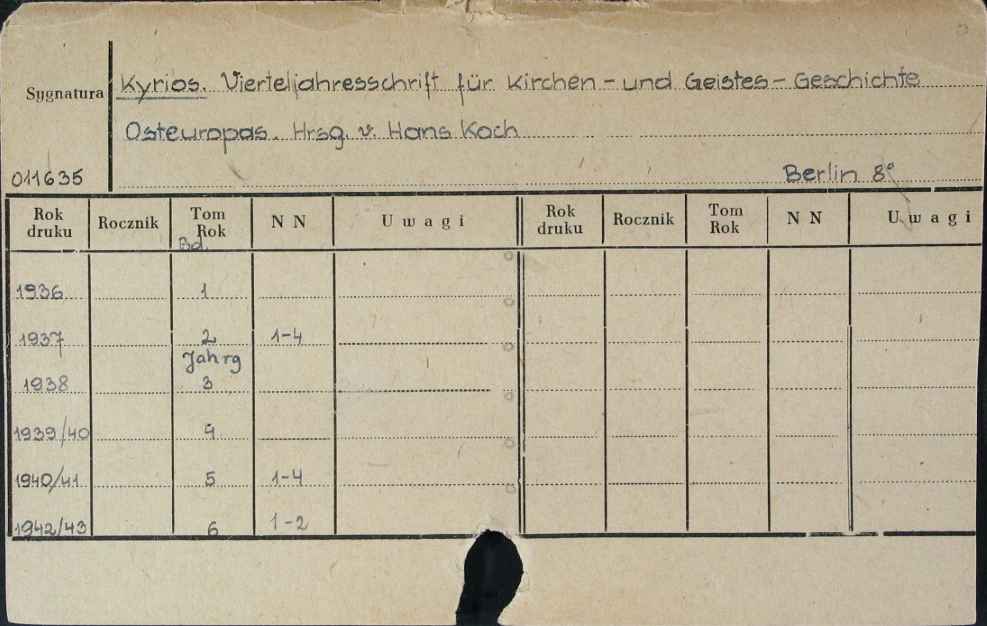 Kyrios. Vierteljahresschrift für Kirchen - und Geistes - Geschichte
Sygnatura
Osteuropas. Hrsg. v. Hans Koch
011635
Berlin 8°
Rok druku Rocznik Tom Rok N N Uwagi Rok druku Rocznik Tom Rok N N Uwagi
Bd.
1936 1
1937 2 1-4
Jahrg
1938 3
1939/40 4
1940/41 5 1-4
1942/43 6 1-2